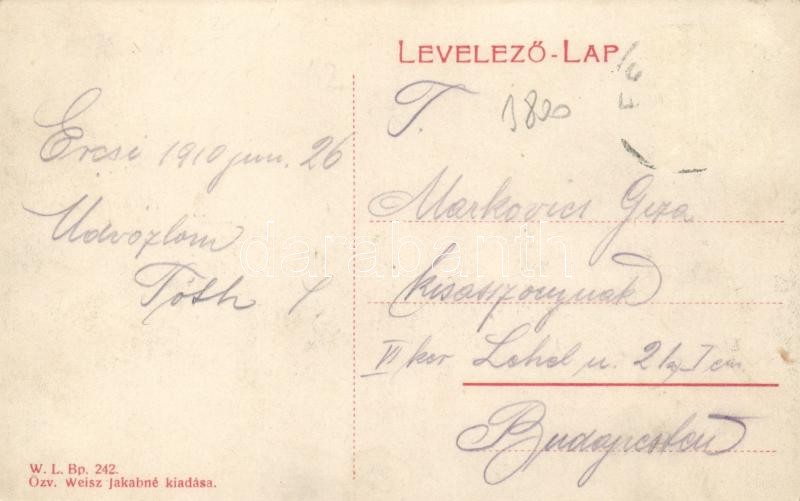 LEVELEZŐ-LAP
1800
Ercsi 1910 jun. 26
Üdvözlöm
Tóth
T.
Markovics Géza
kisasszonynak
VI ker Lehel u. 2
Budapesten
darabanth
W. L. Bp. 242.
Özv. Weisz Jakabné kiadása.